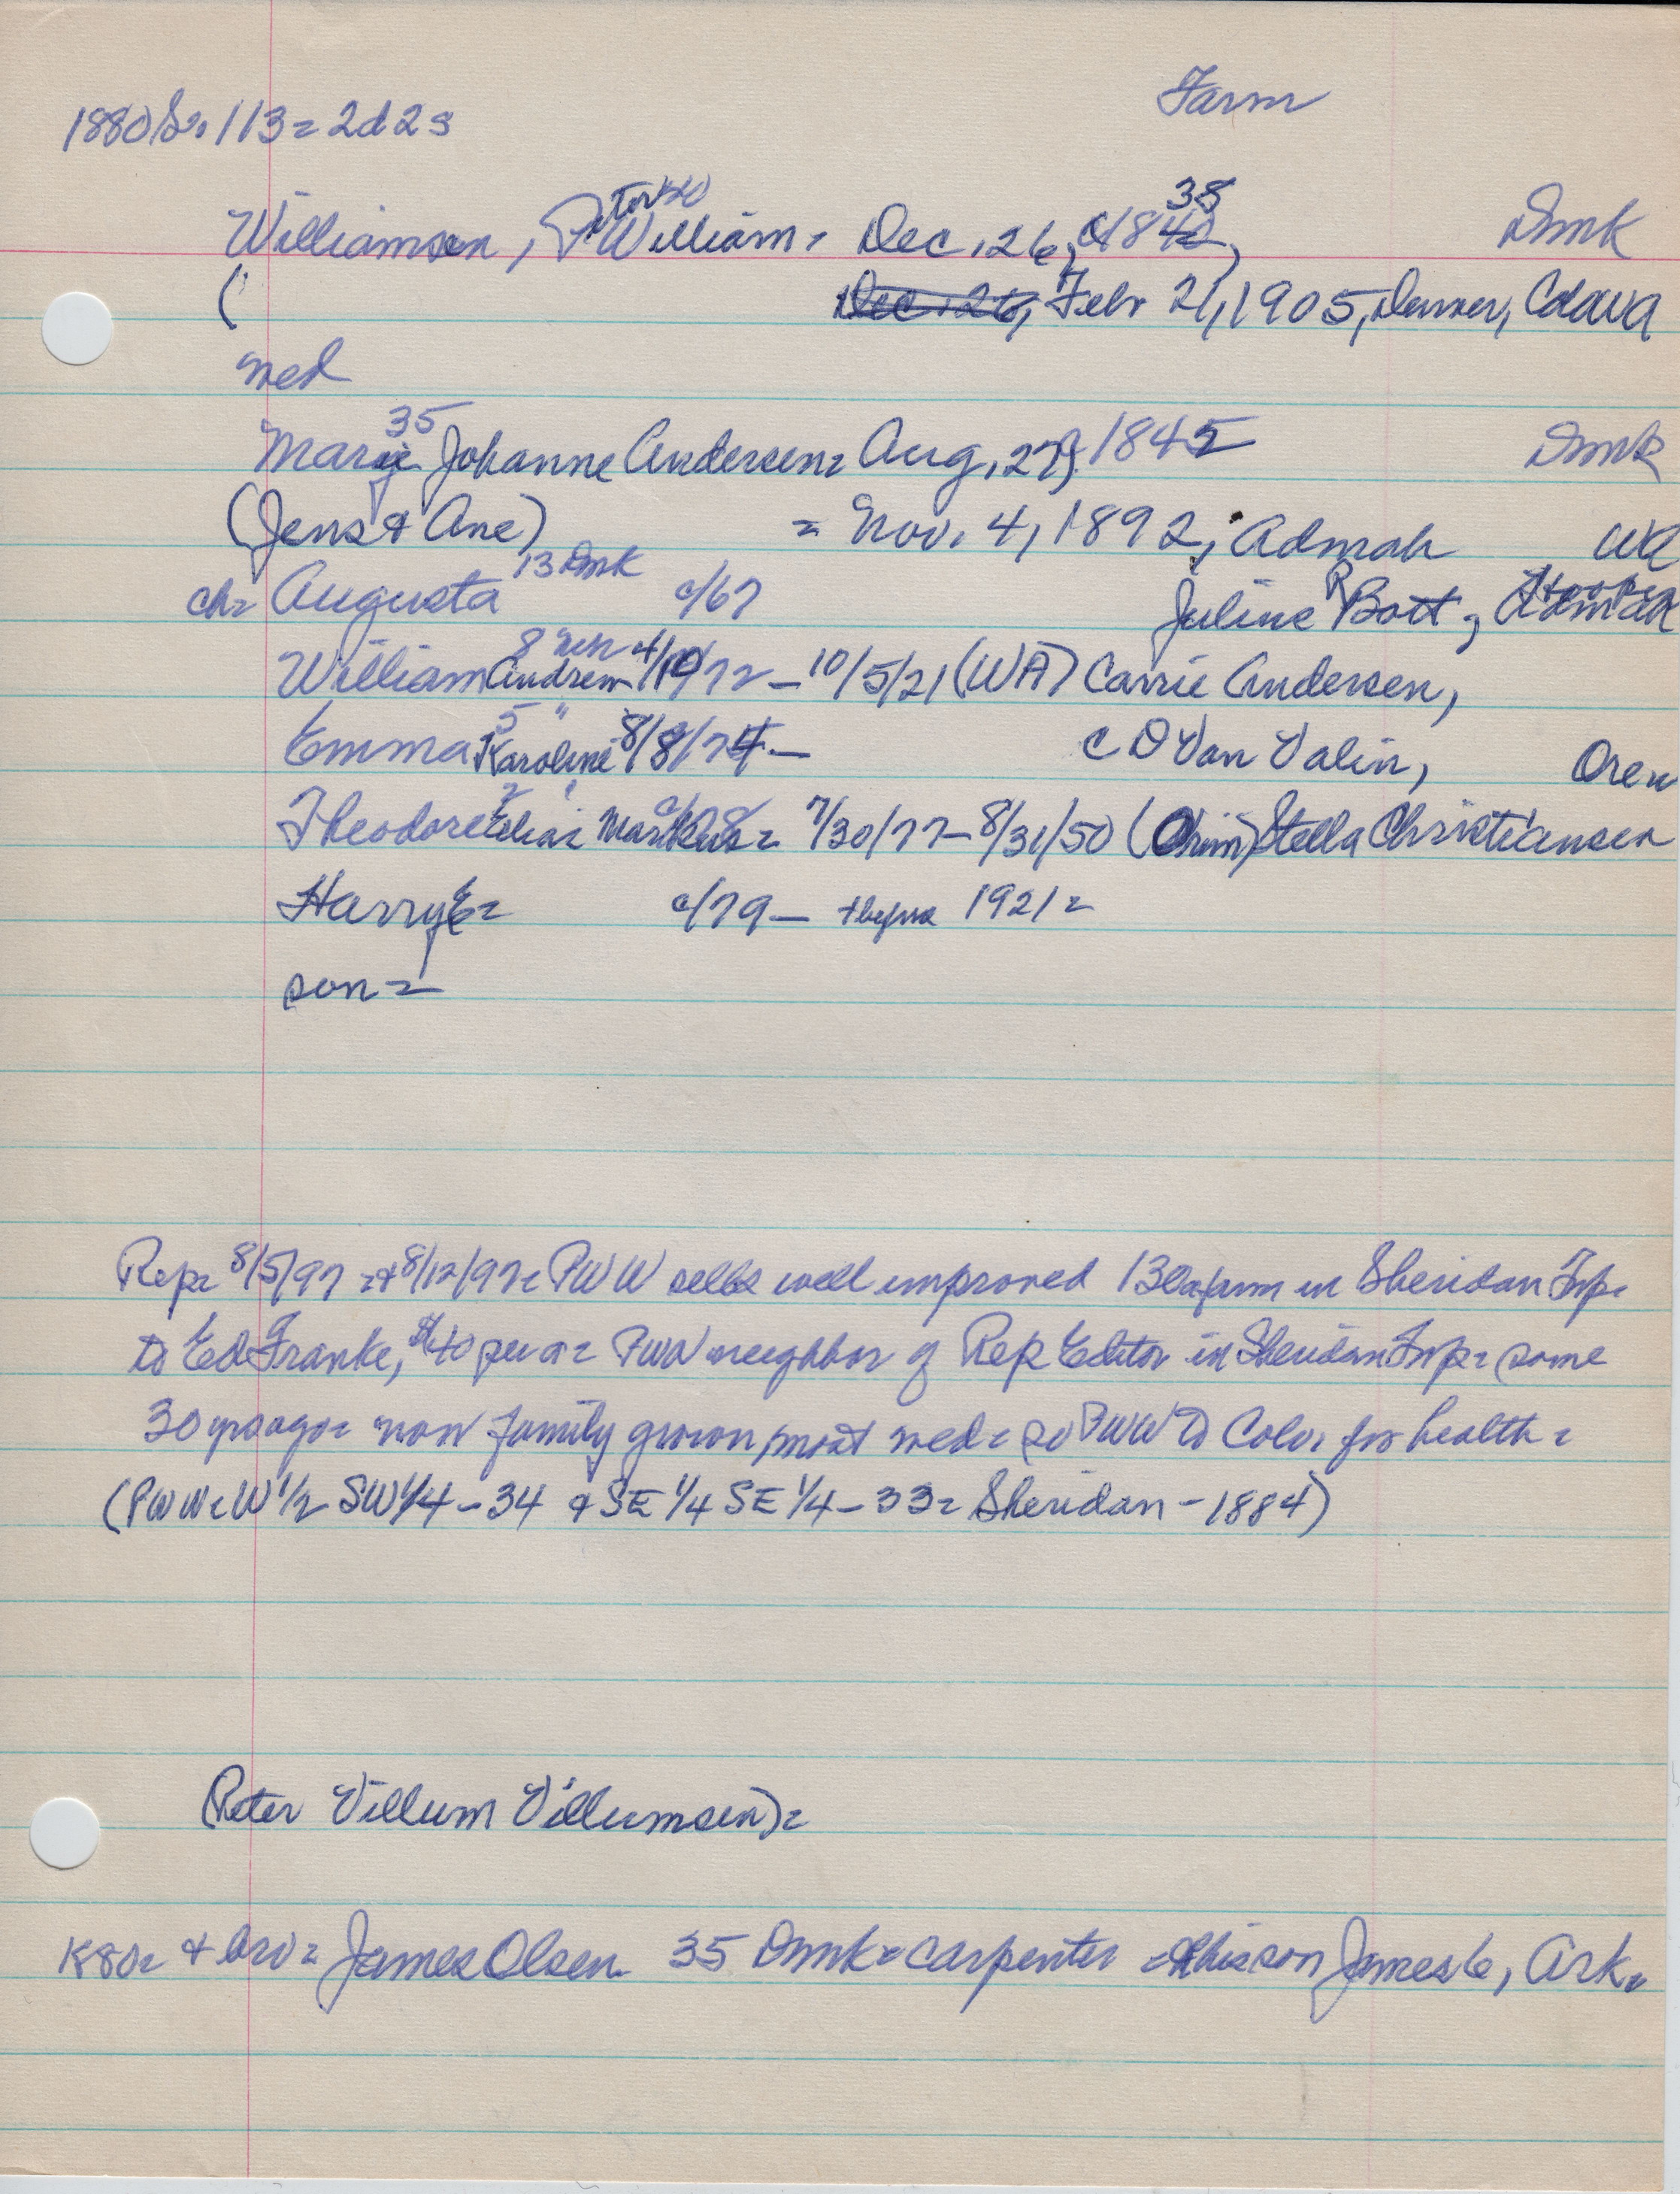 Farm
1880 S. 113 = 2d 2s
Williamsen, Peter William = Dec. 26, 1838, Dmk
( Dec. 26, Febr 21, 1905, Denver, Colo WA
wed
35
Marie Johanne Andersen = Aug, 27, 1845 Dmk
(Jens & Ane) = Nov. 4, 1892, Admah WA
13 Dmk
ch = Augusta c/67 Julius P Bott,
8 Neb
William Andrew 4/19/72 - 10/5/21 (WA) Carrie Andersen,
5 "
Emma Karoline 8/8/74 - C D Van Valin, Oren
2 "
Theodore Elias Markus = 7/30/77 - 8/31/50 (Orum) Stella Christiansen
Harry E = c/79 - + before 1921 =
son =
Rep = 8/5/97 = & 8/12/97 = PWW sells well improved 130a farm in Sheridan Twp =
to Ed Franke, $40 per a = PWW neighbor of Rep Editor in Sheridan Twp = some
30 yrs ago = now family grown, most wed = so PWW to Colo. for health =
(PWW = W 1/2 SW 1/4 - 34 & SE 1/4 SE 1/4 - 33 = Sheridan - 1884)
(Peter Villum Villumsen) =
1880 = + bro = James Olsen 35 Dmk = carpenter = & his son James 6, Ark.